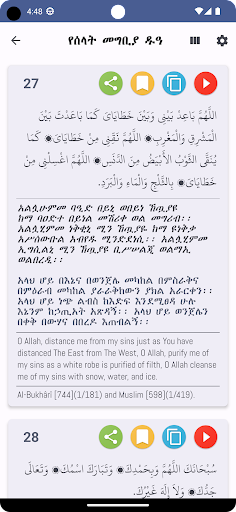 4:48
የሰላት መግቢያ ዱዓ
27
اللَّهُمَّ بَاعِدْ بَيْنِي وَبَيْنَ خَطَايَايَ كَمَا بَاعَدْتَ بَيْنَ
الْمَشْرِقِ وَالْمَغْرِبِ، اللَّهُمَّ نَقِّنِي مِنْ خَطَايَايَ، كَمَا
يُنَقَّى الثَّوْبُ الْأَبْيَضُ مِنَ الدَّنَسِ، اللَّهُمَّ اغْسِلْنِي مِنْ
خَطَايَايَ، بِالثَّلْجِ وَالْمَاءِ وَالْبَرَدِ.
አልሏሁምመ ባዒድ በይኒ ወበይነ ኸጧያየ
ከማ ባዐድተ በይነል መሽሪቀ ወል መግሪብ፡፡
አልሏሂምመ ነቅቂኒ ሚን ኸጧያየ ከማ ዩነቅቃ
ከማ ዩነቅቃ
አላህ ሆይ በእኔና በወንጀሌ መካከል በምስራቅና
በምዕራብ መካከል ያራራቅከውን ያክል አራርቀን፡፡
አላህ ሆይ ነጭ ልብስ ከእድፍ እንደሚፀዳ ሁሉ
እኔንም ከኃጢአት አጽዳኝ፡፡ አላህ ሆይ ወንጀሌን
በቀት በውሃና በበረዶ እጠብልኝ፡፡
O Allah, distance me from my sins just as You have
distanced The East from The West, O Allah, purify me of
my sins as a white robe is purified of filth, O Allah cleanse
me of my sins with snow, water, and ice.
Al-Bukhârî [744](1/181) and Muslim [598](1/419).
28
سُبْحَانَكَ اللَّهُمَّ وَبِحَمْدِكَ، وَتَبَارَكَ اسْمُكَ، وَتَعَالَى
جَدُّكَ، وَلاَ إِلَهَ غَيْرُكَ.